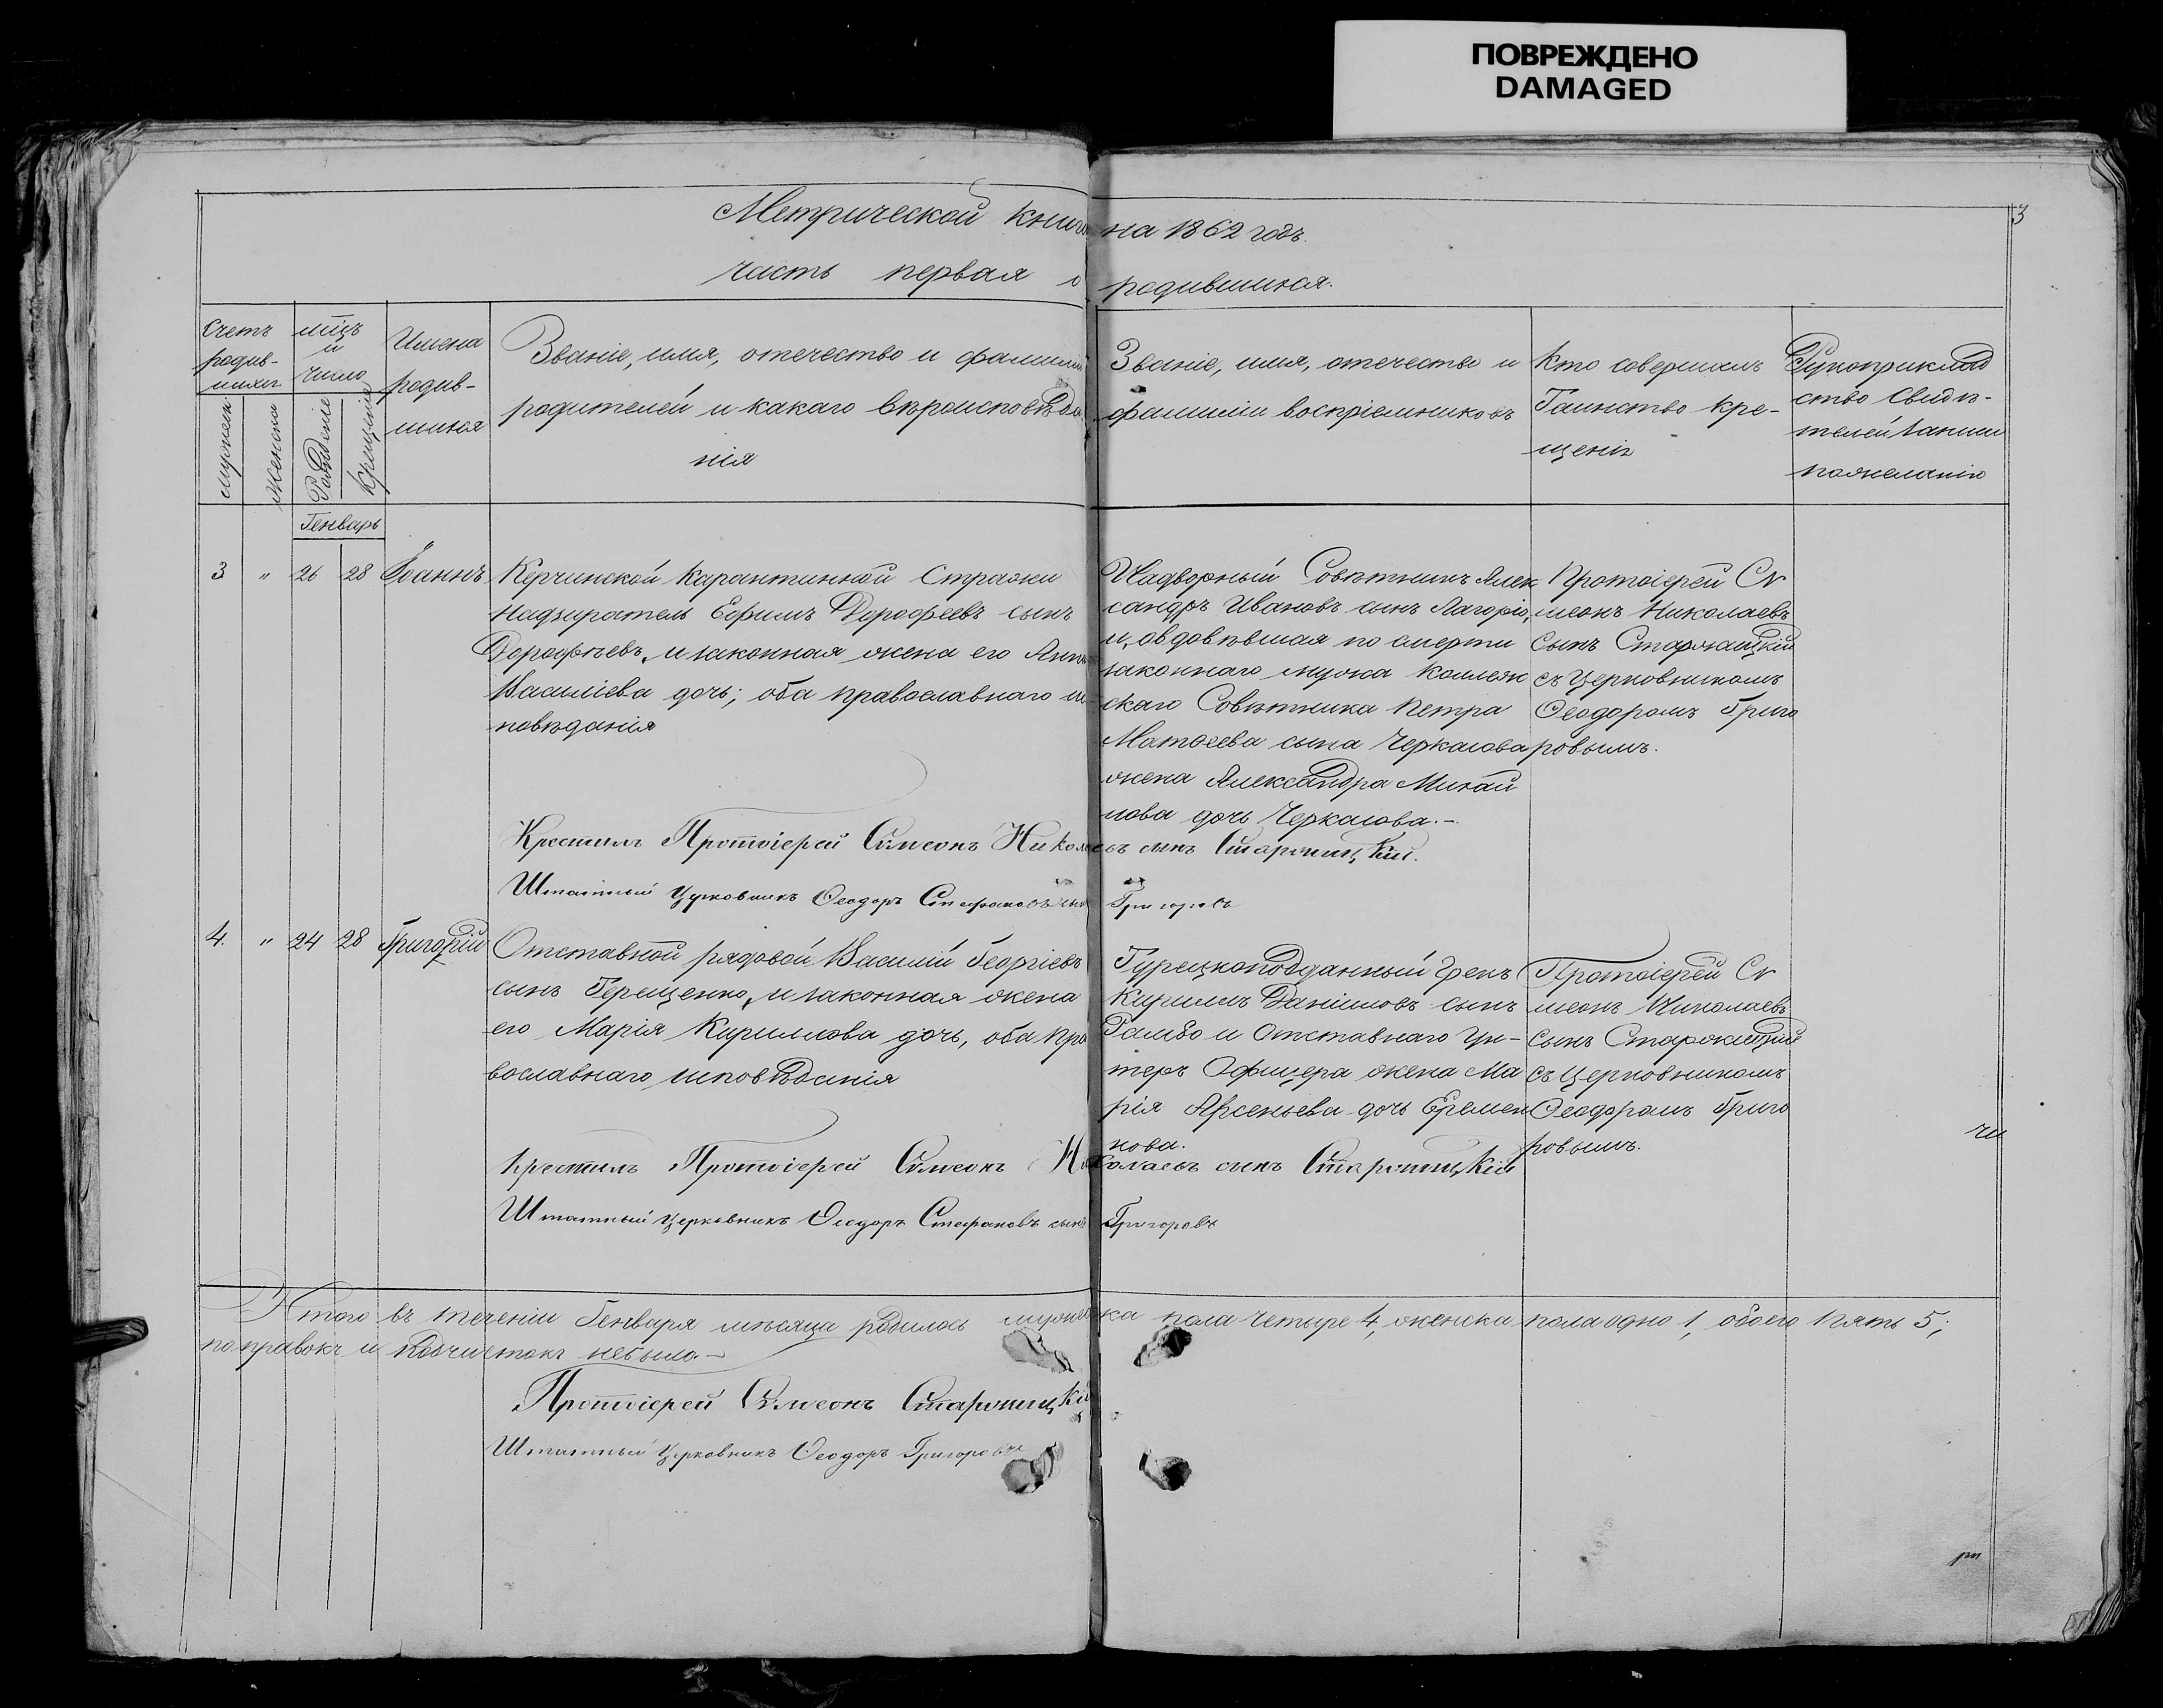 ПОВРЕЖДЕНО
DAMAGED
3
Метрической книги на 1862 годъ.
часть первая о родившихся.
Счетъ родив-шихся
Мужеск.
Женска
мцъ и число
Рожденіе
Крещеніе
Имена родив-шихся
Званіе, имя, отечество и фамиліи
родителей и какаго вѣроисповѣда
нія
Званіе, имя, отечество и
фамиліи воспріемниковъ
Кто совершалъ
Таинство кре-
щенія
Рукоприклад
ство свидѣ-
телей записи
пожеланію
Генварь
3 " 26 28 Іоаннъ
Керчинской Карантинной Стражи
надзиратель Ефимъ Дорофеевъ сынъ
Дорофѣевъ, и законная жена его Анна
Василіева дочь; оба православнаго ис-
повѣданія
Надворный Совѣтникъ Алек
сандръ Ивановъ сынъ Лагоріо,
и, овдовѣвшая по смерти
законнаго мужа Коллеж
скаго Совѣтника Петра
Матѳеева сына Черкасова
жена Александра Михай
лова дочь Черкасова.-
Протоіерей Сѵ
меонъ Николаевъ
сынъ Старожицкій
съ Церковникомъ
Ѳеодоромъ Григо
ровымъ.
Крестилъ Протоіерей Сѵмеонъ Николаевъ сынъ Старожицкій.
Штатный Церковникъ Ѳеодоръ Стефановъ сынъ Григоровъ
4. " 24 28 Григорій
Отставной рядовой Василій Георгіевъ
сынъ Терещенко, и законная жена
его Марія Кириллова дочь, оба пра
вославнаго исповѣданія
Турецкоподданный Грекъ
Кириллъ Даніиловъ сынъ
Галибо и Отставнаго Ун-
теръ Офицера жена Ма
рія Арсеньева дочь Еремен
кова.
Протоіерей Сѵ
меонъ Николаевъ
сынъ Старожицкій
съ Церковникомъ
Ѳеодоромъ Григо
ровымъ.
Крестилъ Протоіерей Сѵмеонъ Николаевъ сынъ Старожицкій
Штатный Церковникъ Ѳеодоръ Стефановъ сынъ Григоровъ
Итого въ теченіи Генваря мѣсяца родилось мужеска пола четыре 4, женска пола одно 1, обоего пять 5;
поправокъ и подчистокъ небыло.-
Протоіерей Сѵмеонъ Старожицкій
Штатный Церковникъ Ѳеодоръ Григоровъ